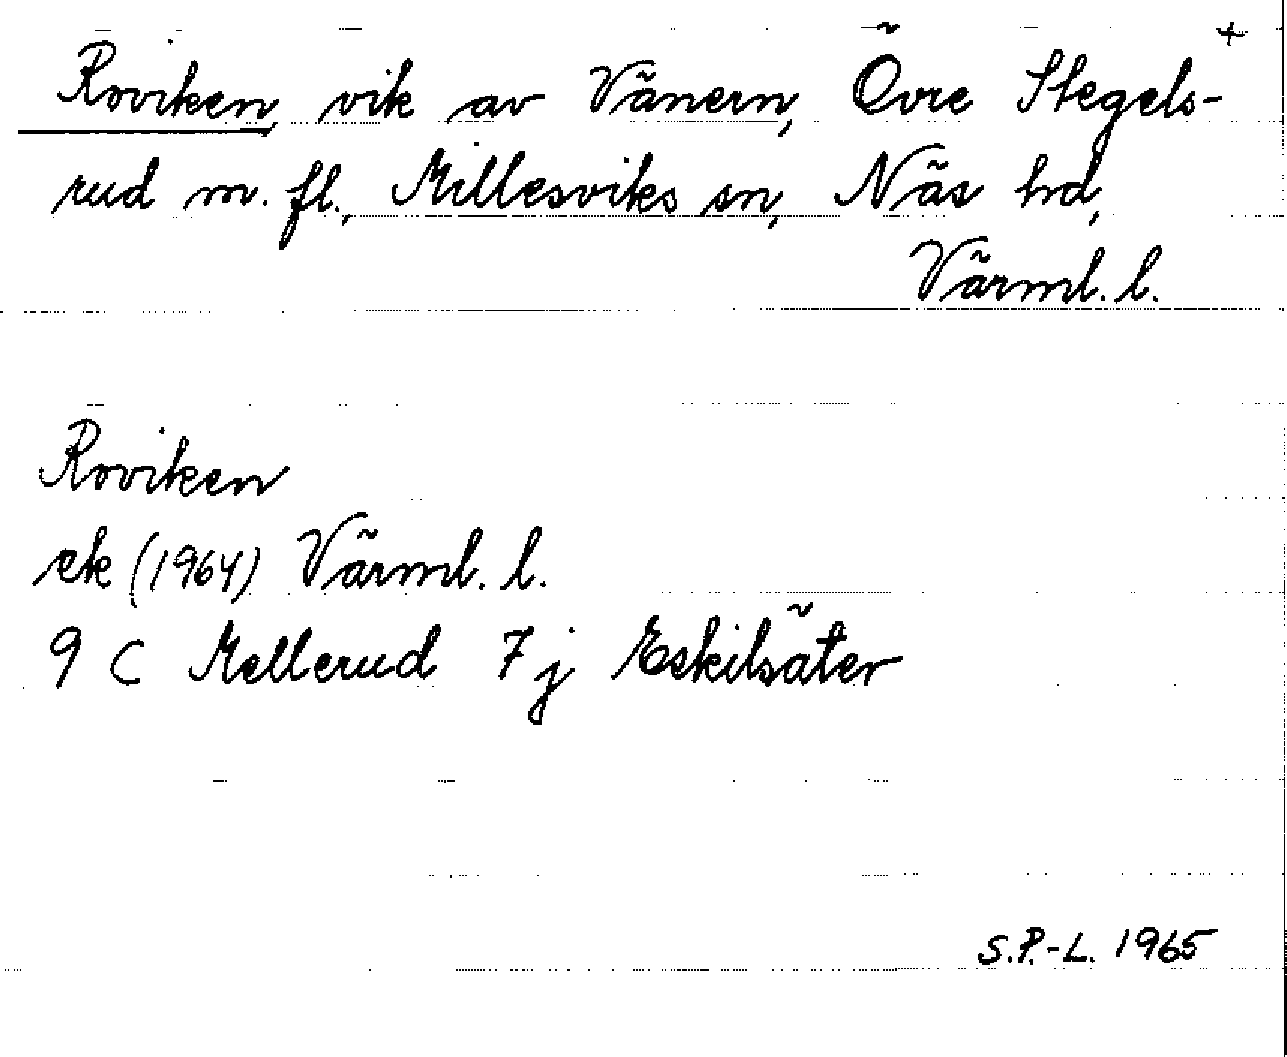 +
Roviken, vik av Vänern, Övre Stegels-
rud m. fl., Millesviks sn, Näs hd,
Värml. l.
Roviken
ek (1964) Värml. l.
9 C Mellerud 7 j Eskilsäter
S.P.-L. 1965